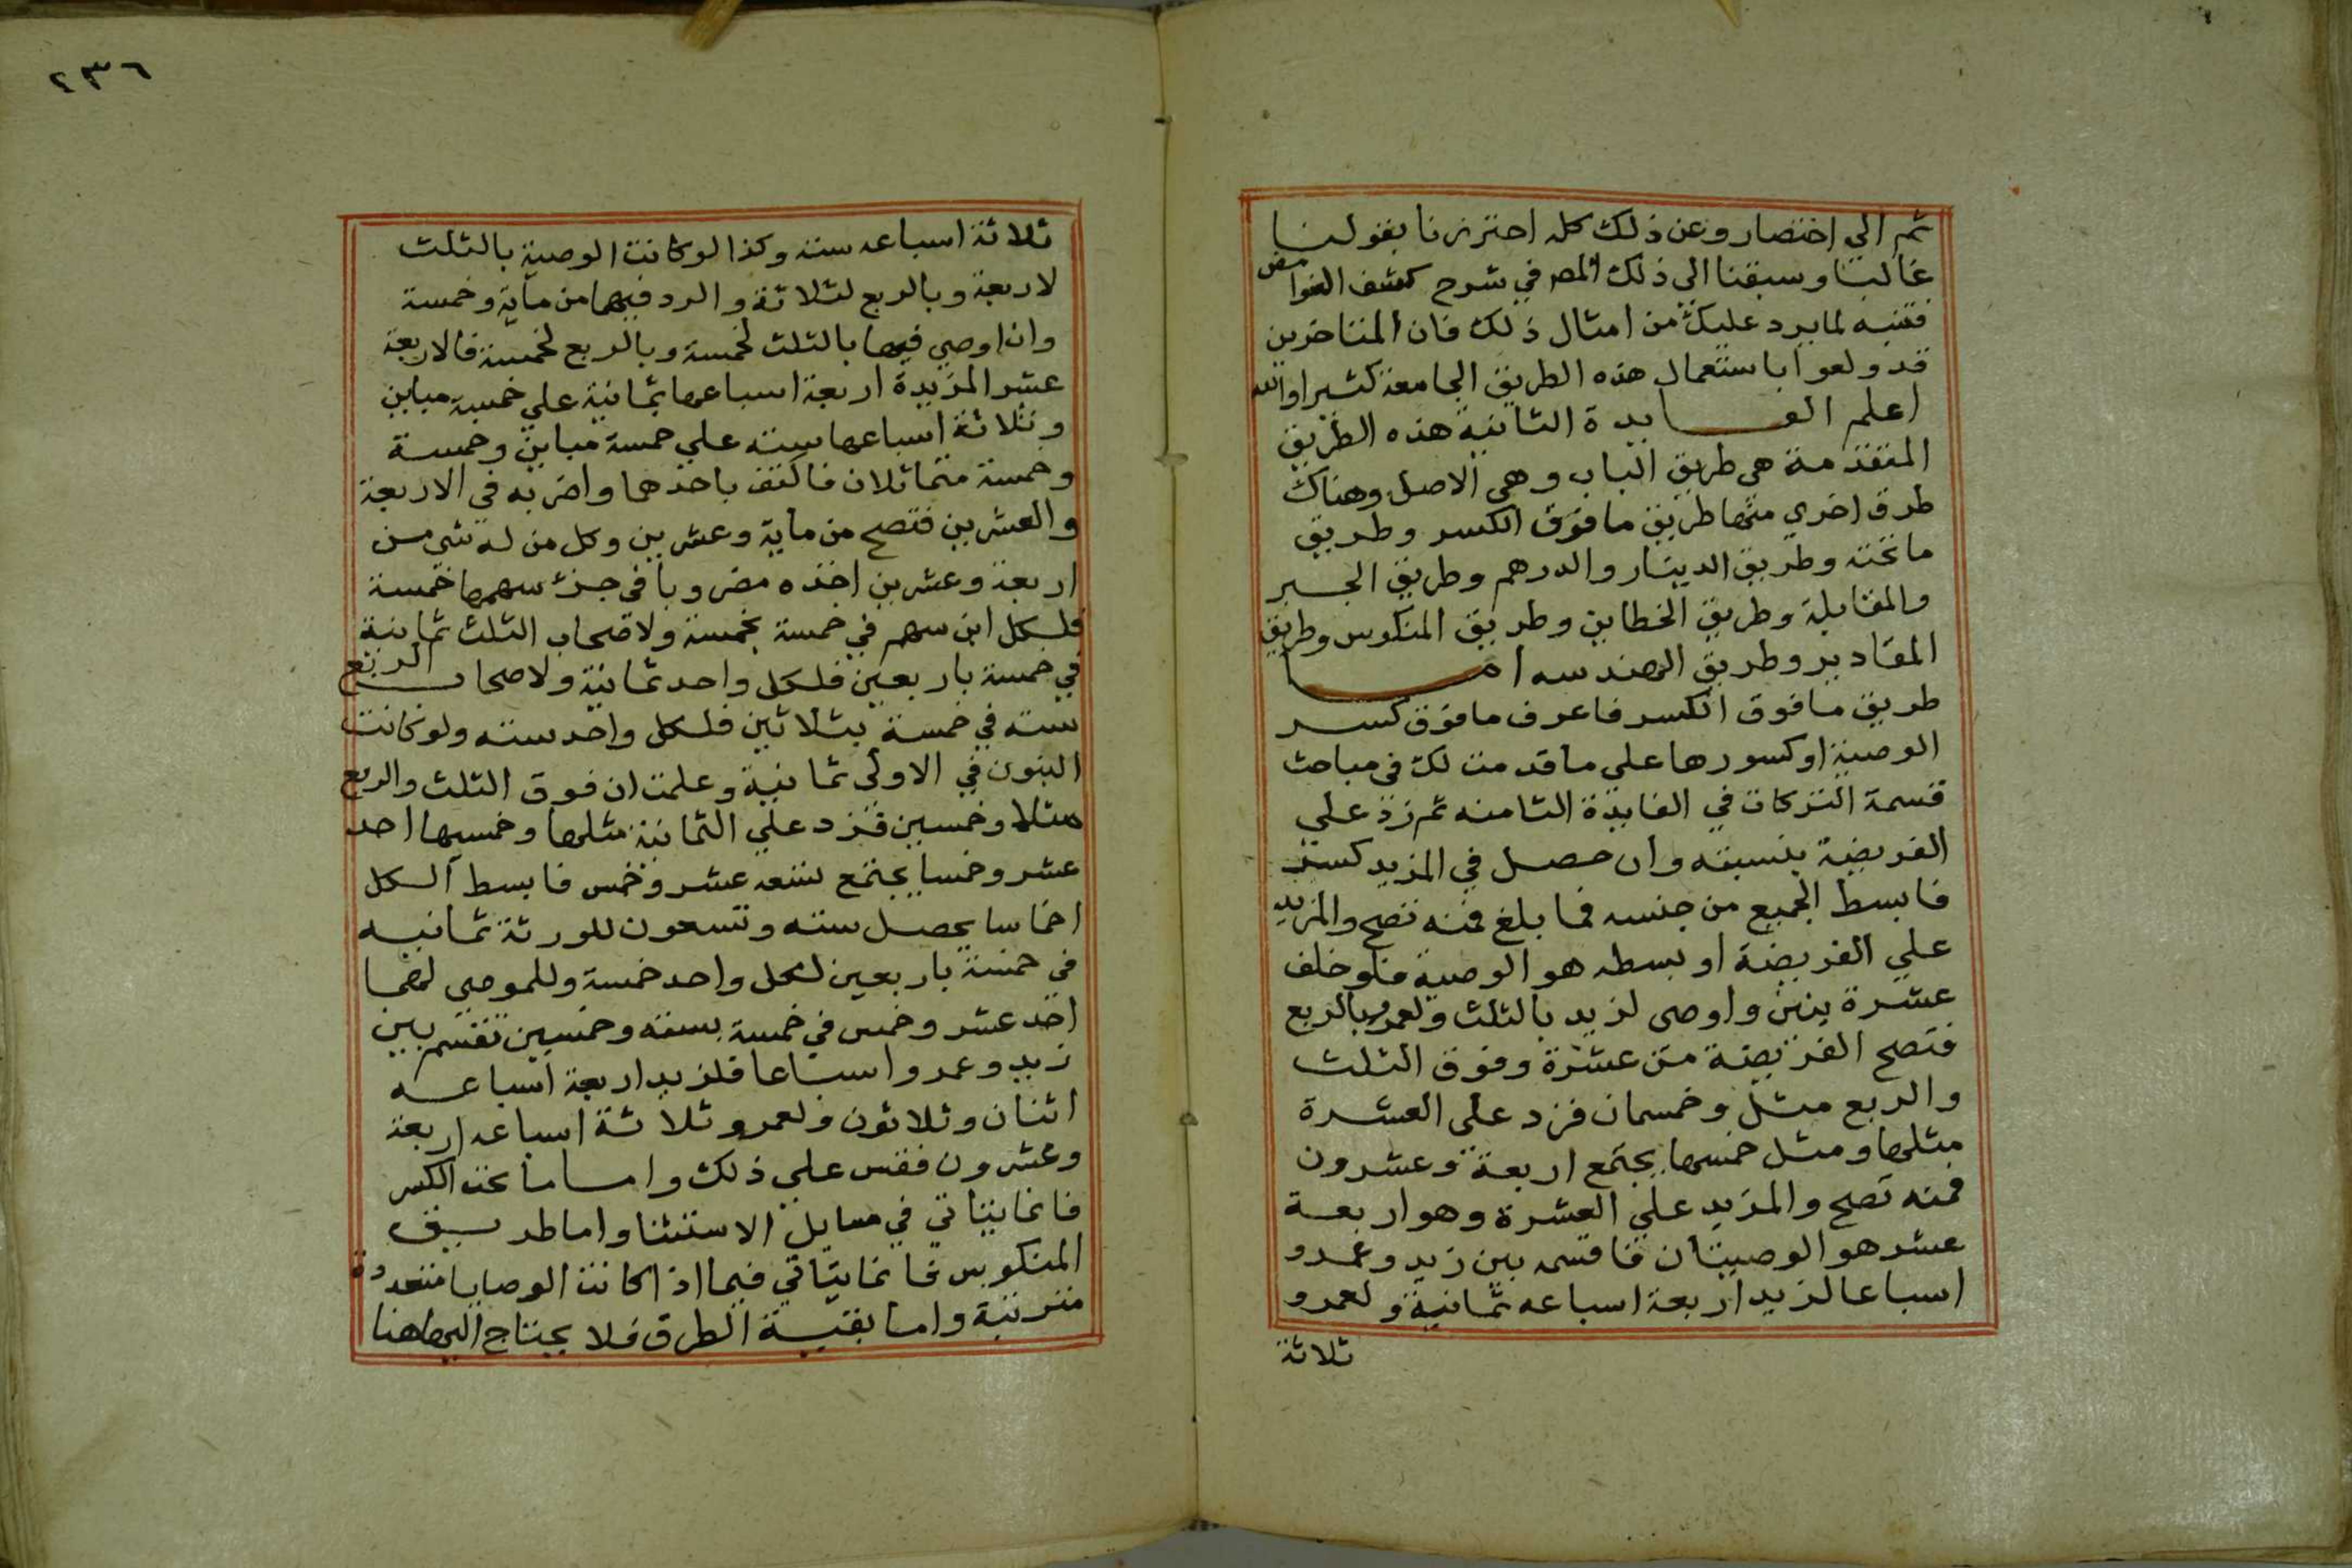 ثم الي اختصار وعن ذلك كله احترزنا بقولنا
غالبا وسبقنا الى ذلك المصـ في شرح كشف الغوامض
فتنبه لما يرد عليك من امثال ذلك فان المتاخرين
قد ولعوا باستعمال هذه الطريق الجامعة كثيرا والله
اعلم الفــايدة الثانية هذه الطريق
المتقدمة هى طريق الباب وهي الاصل وهناك
طرق اخري منها طريق ما فوق الكسر وطريق
ما تحته وطريق الدينار والدرهم وطريق الجبر
والمقابلة وطريق الخطاين وطريق المنكوس وطريق
المقادير وطريق الهندسه امــا
طريق ما فوق الكسر فاعرف ما فوق كسر
الوصية او كسورها على ما قدمت لك فى مباحث
قسمة التركات في الفايدة الثامنه ثم زد علي
الفريضة بنسبته وان حصل في المزيد كسر
فابسط الجميع من جنسه فما بلغ فمنه تصح والمزيد
علي الفريضة او بسطه هو الوصية فلو خلف
عشرة بنين واوصى لزيد بالثلث ولعمرو بالربع
فتصح الفريضة من عشرة وفوق الثلث
والربع مثل وخمسان فزد على العشرة
مثلها ومثل خمسها يجتمع اربعة وعشرون
فمنه تصح والمزيد علي العشرة وهو اربعة
عشر هو الوصيتان فاقسمه بين زيد وعمرو
اسباعا لزيد اربعة اسباعه ثمانية ولعمرو
ثلاثة
٢٣٦
ثلاثة اسباعه ستة وكذا لو كانت الوصية بالثلث
لاربعة وبالربع لثلاثة والرد فيهما من ماية وخمسة
وان اوصي فيها بالثلث لخمسة وبالربع لخمسة فالاربعة
عشر المزيدة اربعة اسباعها ثمانية علي خمسة مباين
وثلاثة اسباعها سته علي خمسة مباين وخمسة
وخمسة متماثلان فاكتف باحدهما واضربه في الاربعة
والعشرين فتصح من ماية وعشرين وكل من له شي من
اربعة وعشرين اخذه مضروبا في جزء سهمها خمسة
فلكل ابن سهم في خمسة بخمسة ولاصحاب الثلث ثمانية
في خمسة باربعين فلكل واحد ثمانية ولاصحاب الربع
سته في خمسة بثلاثين فلكل واحد سته ولو كانت
البنون في الاولى ثمانية وعلمت ان فوق الثلث والربع
مثلا وخمسين فزد علي الثمانية مثلها وخمسيها احد
عشر وخمسا يجتمع تسعه عشر وخمس فابسط الكل
اخماسا يحصل سته وتسعون للورثة ثمانيه
في خمسة باربعين لكل واحد خمسة وللموصى لهما
احد عشر وخمس في خمسة بسته وخمسين تقسم بين
زيد وعمرو اسباعا فلزيد اربعة اسباعه
اثنان وثلاثون ولعمرو ثلاثة اسباعه اربعة
وعشرون فقس علي ذلك وامــا ما تحت الكسر
فانما يتاتي في مسايل الاستثنا واما طريق
المنكوس فانما يتاتي فيما اذا كانت الوصايا متعددة
مترتبة واما بقية الطرق فلا يحتاج اليها هنا